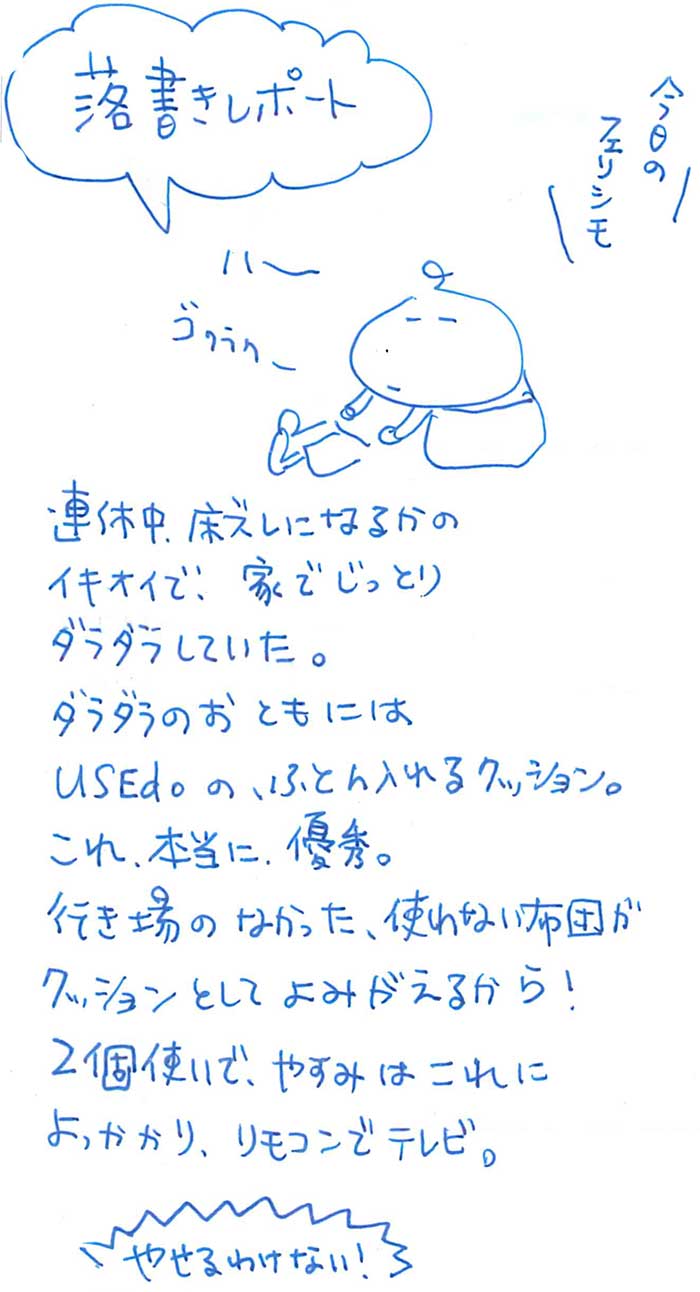 落書きレポート
今日の
フェリシモ
ハ〜
ゴクラク〜
連休中、床ズレになるかの
イキオイで、家でじっとり
ダラダラしていた。
ダラダラのおともには
USEdoの、ふとん入れるクッション。
これ、本当に、優秀。
行き場のなかった、使わない布団が
クッションとしてよみがえるから！
2個使いで、やすみはこれに
よっかかり、リモコンでテレビ。
やせるわけない！